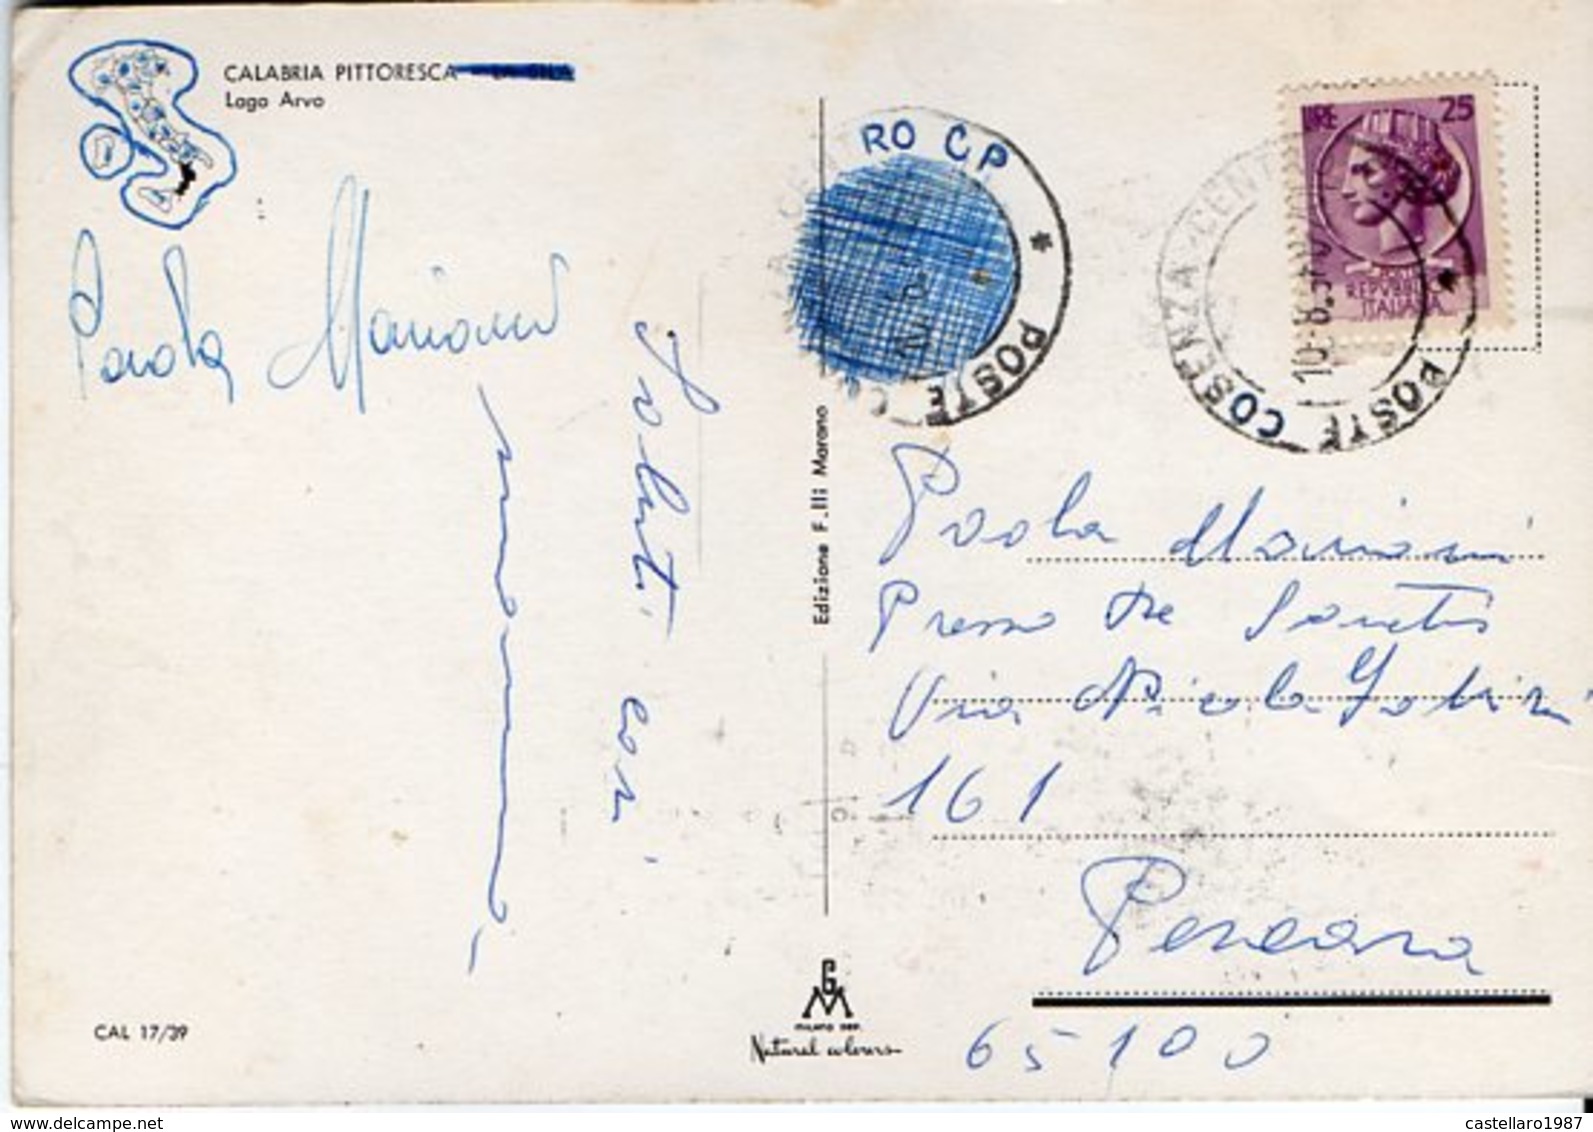 CALABRIA PITTORESCA - LA SILA
Lago Arvo
Paola Mariani
Saluti cari
mamma
Edizione F.lli Marano
CAL 17/39
RO CP
* POSTE
LIRE 25
POSTE
REPVBBLICA
ITALIANA
COSENZA CENTRO
* POSTE
10-8
Paola Mariani
Presso De Sanctis
Via Nicola
161
Pescara
65100
GM
MILANO DEP.
Natural colorcro
castellaro1987